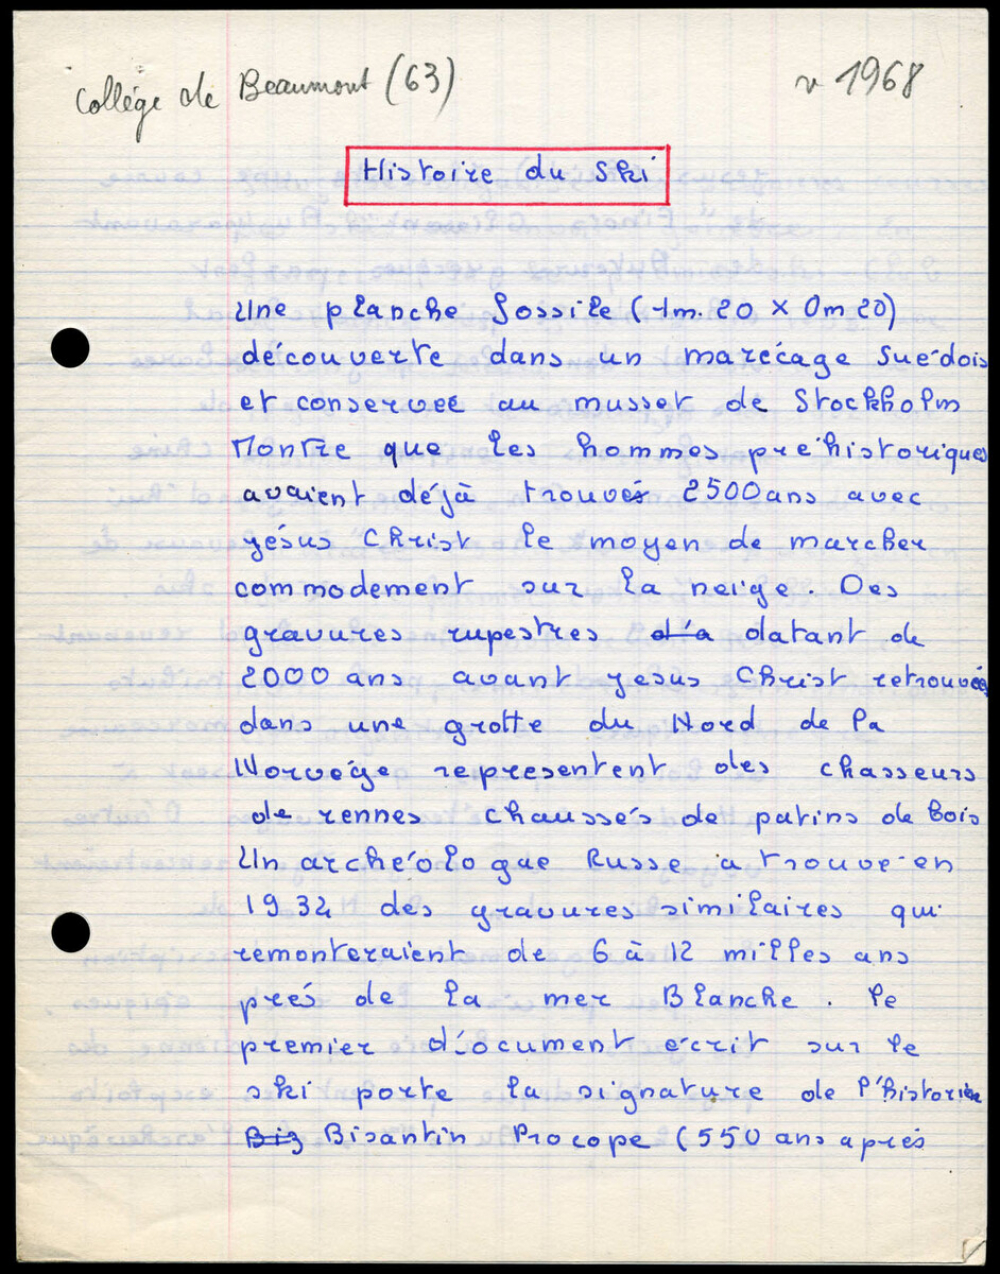 Collége de Beaumont (63)
v 1968
Histoire du Ski
Une planche fossile (1m.20 x 0m20)
découverte dans un marécage Suédois
et conservee au musset de Stockholm
Montre que les hommes préhistoriques
avaient déjà trouvés 2500ans avec
yésus Christ le moyen de marcher
commodement sur la neige. Des
gravures rupestres d'a datant de
2000 ans avant yesus Christ retrouvées
dans une grotte du Nord de la
Norvège representent des chasseurs
de rennes chaussés de patins de bois
Un archéologue Russe a trouvé en
1932 des gravures similaires qui
remonteraient de 6 à 12 milles ans
prés de la mer Blanche. le
premier document écrit sur le
ski porte la signature de l'historien
Biz Bisantin Procope (550 ans aprés